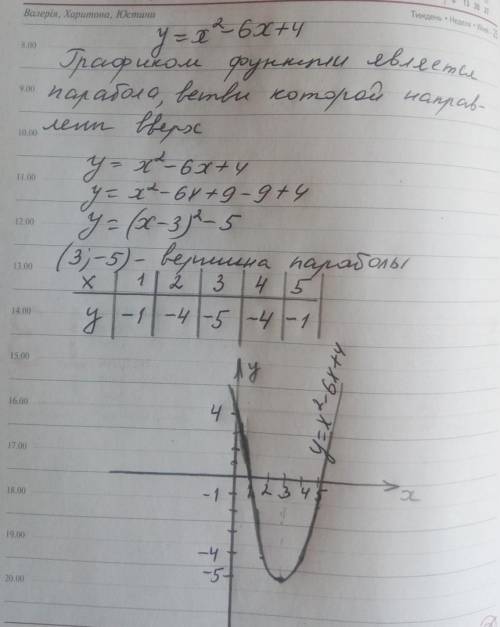 Валерія, Харитона, Юстини
Тиждень • Неделя •
y = x² - 6x + 4
8.00
Графиком функции является
9.00
парабола, ветви которой направ-
лены вверх
10.00
y = x² - 6x + 4
11.00
y = x² - 6x + 9 - 9 + 4
12.00
y = (x - 3)² - 5
(3; -5) - вершина параболы
13.00
x | 1 | 2 | 3 | 4 | 5
14.00
y | -1 | -4 | -5 | -4 | -1
15.00
y
y = x² - 6x + 4
16.00
4
17.00
18.00
-1 1 2 3 4 5 x
19.00
-4
20.00
-5